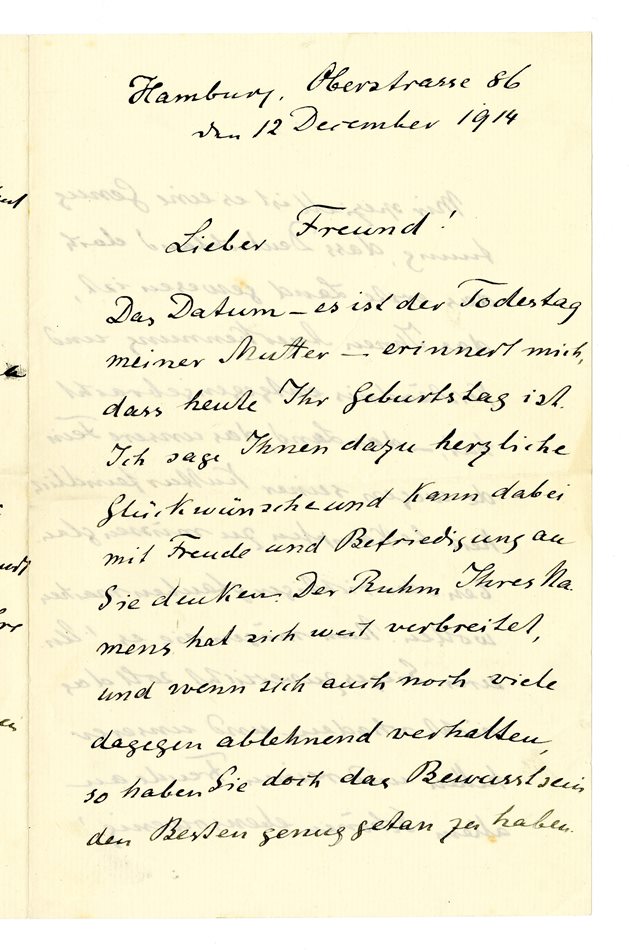 Hamburg, Oberstrasse 86
den 12 December 1914
Lieber Freund!
Das Datum – es ist der Todestag
meiner Mutter – erinnert mich,
dass heute Ihr Geburtstag ist.
Ich sage Ihnen dazu herzliche
Glückwünsche und kann dabei
mit Freude und Befriedigung an
Sie denken. Der Ruhm Ihres Na-
mens hat sich weit verbreitet,
und wenn sich auch noch viele
dagegen ablehnend verhalten,
so haben Sie doch das Bewusstsein
den Besten genug getan zu haben.